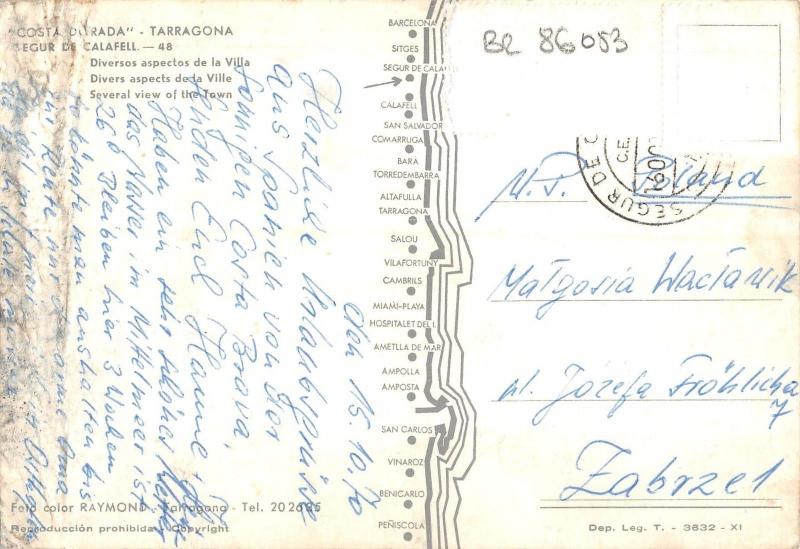 "COSTA DORADA" - TARRAGONA
SEGUR DE CALAFELL. — 48
Diversos aspectos de la Villa
Divers aspects de la Ville
Several view of the Town
BARCELONA
SITGES
SEGUR DE CALAFELL
CALAFELL
SAN SALVADOR
COMARRUGA
BARA
TORREDEMBARRA
ALTAFULLA
TARRAGONA
SALOU
VILAFORTUNY
CAMBRILS
MIAMI-PLAYA
HOSPITALET DEL I.
AMETLLA DE MAR
AMPOLLA
AMPOSTA
SAN CARLOS
VINAROZ
BENICARLO
PEÑISCOLA
den 15.10.70
Herzliche Urlaubsgrüsse
aus Spanien von der
sonnigen Costa Brava,
senden Euch Hanne +
Haben ein sehr schönes
das Wasser im Mittelmeer ist
26°. Bleiben hier 3 Wochen
so könnte man aushalten bis
zur Rente
BR 86053
SEGUR DE C
C.E.
16.00
W.P. Poland
Małgosia Wacławik
pl. Józefa Fröhlicha
7
Zabrze 1
Foto color RAYMOND - Tarragona - Tel. 202685
Reproducción prohibida - Copyright
Dep. Leg. T. - 3632 - XI